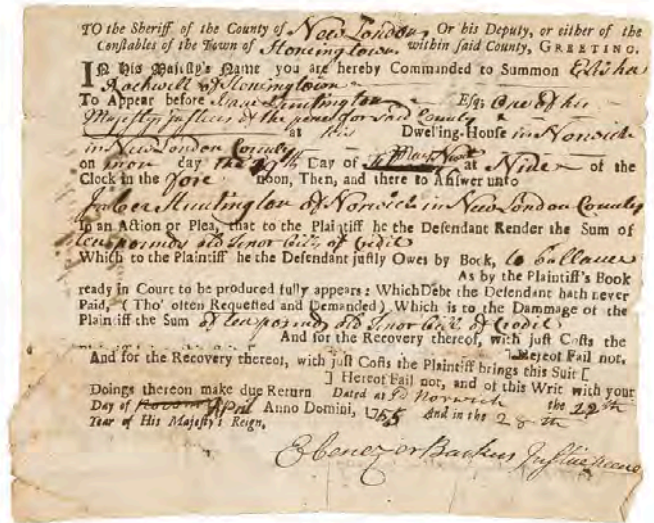 TO the Sheriff of the County of New London, Or his Deputy, or either of the
Constables of the Town of Stoningtown within said County, GREETING.
IN His Majesty's Name you are hereby Commanded to Summon Elisha
Rockwell of Stoningtown
To Appear before Isaac Huntington Esq; One of his
Majestys Justices of the peace for said County
at his Dwelling-House in Norwich
in New London County
on mon day the 29th Day of at Nine of the
Clock in the fore noon, Then, and there to Answer unto
Jabez Huntington of Norwich in New London County
In an Action or Plea, that to the Plaintiff he the Defendant Render the Sum of
ten pounds old Tenor Bills of Credit
Which to the Plaintiff he the Defendant justly Owes by Book, to ballance
As by the Plaintiff's Book
ready in Court to be produced fully appears: Which Debt the Defendant hath never
Paid, (Tho' often Requested and Demanded) Which is to the Dammage of the
Plaintiff the Sum of ten pounds old Tenor Bills of Credit
And for the Recovery thereof, with just Costs the
] Hereof Fail not,
And for the Recovery thereof, with just Costs the Plaintiff brings this Suit [
] Hereof Fail not, and of this Writ with your
Doings thereon make due Return Dated at Sd Norwich the
Day of April Anno Domini, 1755 And in the 28th
Year of His Majesty's Reign.
Ebenezer Backus Justice peace